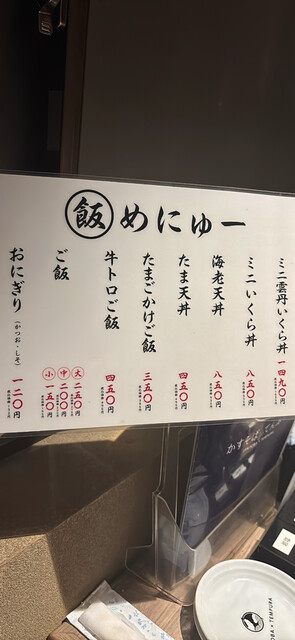 飯めにゅー
ミニ雲丹いくら丼
一四九〇円
ミニいくら丼
八五〇円
海老天丼
八五〇円
たま天丼
四五〇円
たまごかけご飯
三五〇円
牛トロご飯
四五〇円
ご飯
大 二五〇円
中 二〇〇円
小 一五〇円
おにぎり(かつお・しそ)
一二〇円